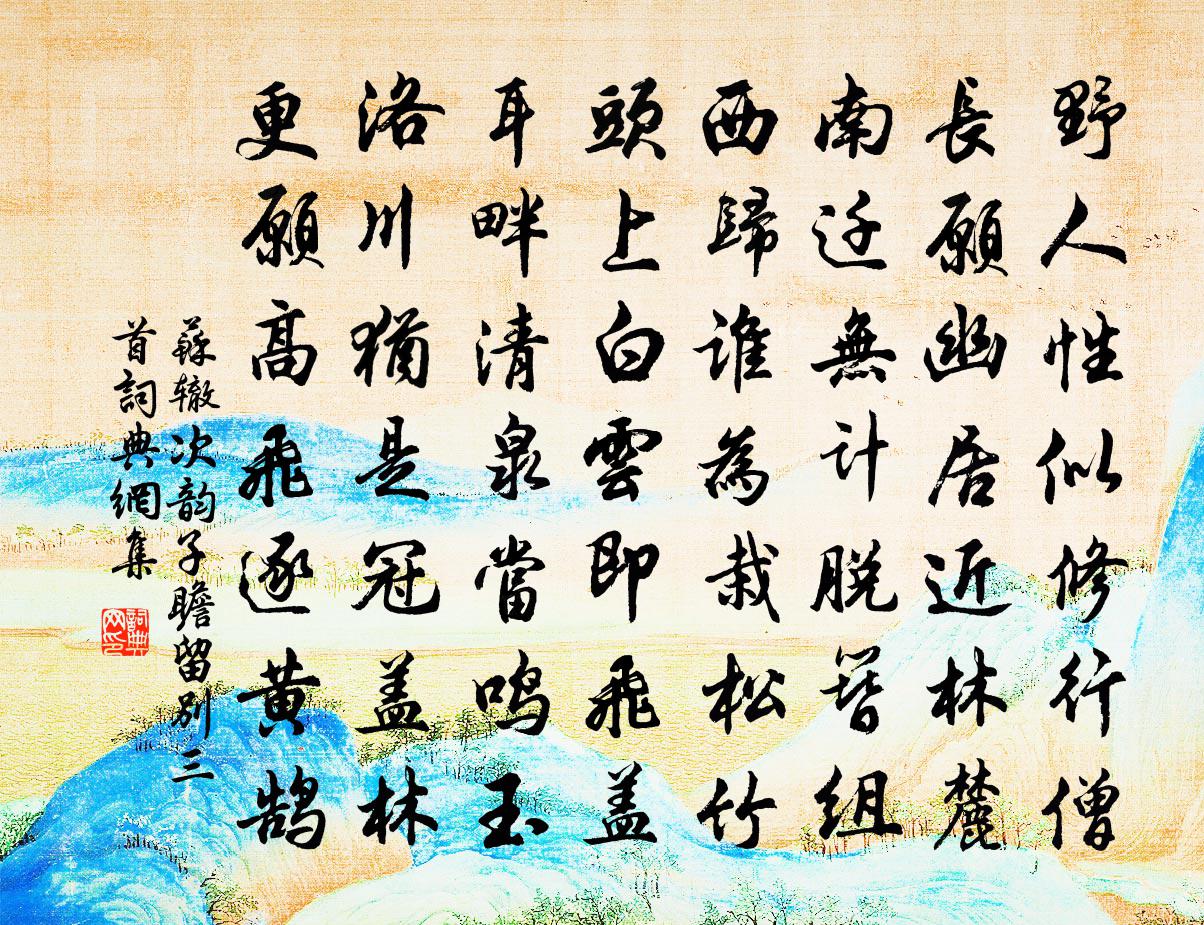 野人性似修行僧
長願幽居近林麓
南迁無計脱簪組
西歸谁為栽松竹
頭上白雲即飛盖
耳畔清泉當鸣玉
洛川猶是冠盖林
更願高飛逐黄鹄
蘇辙次韵子瞻留别三
首詞典網集
詞典
网印